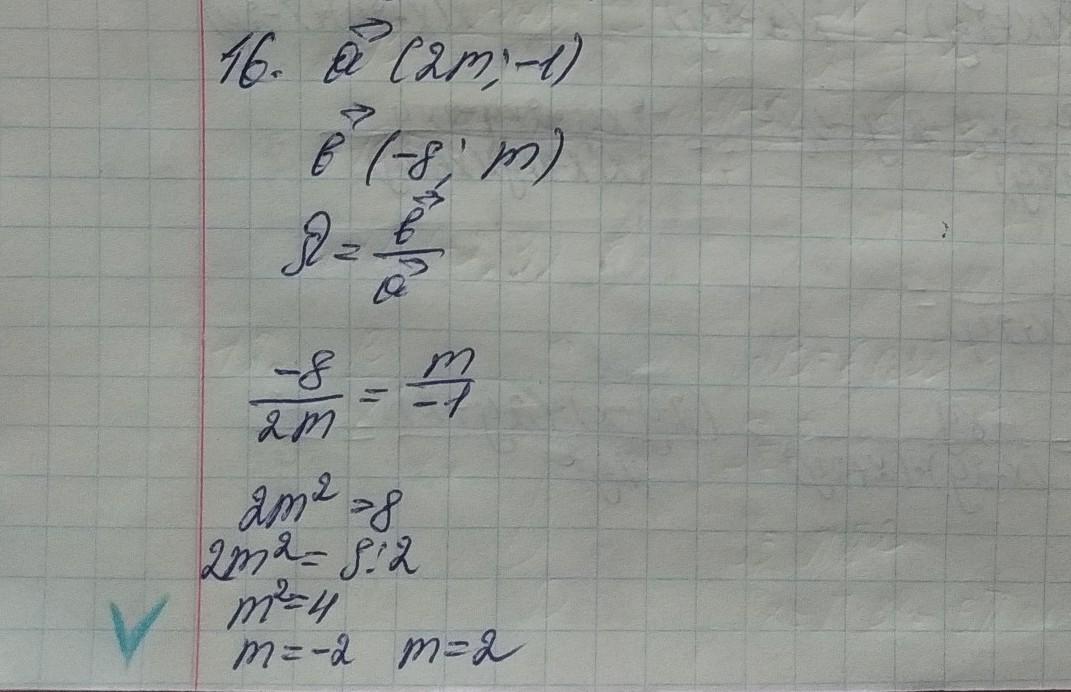 16. a⃗ (2m; -1)
b⃗ (-8; m)
k = b⃗/a⃗
-8/2m = m/-1
2m² = 8
2m² = 8:2
m² = 4
m = -2 m = 2